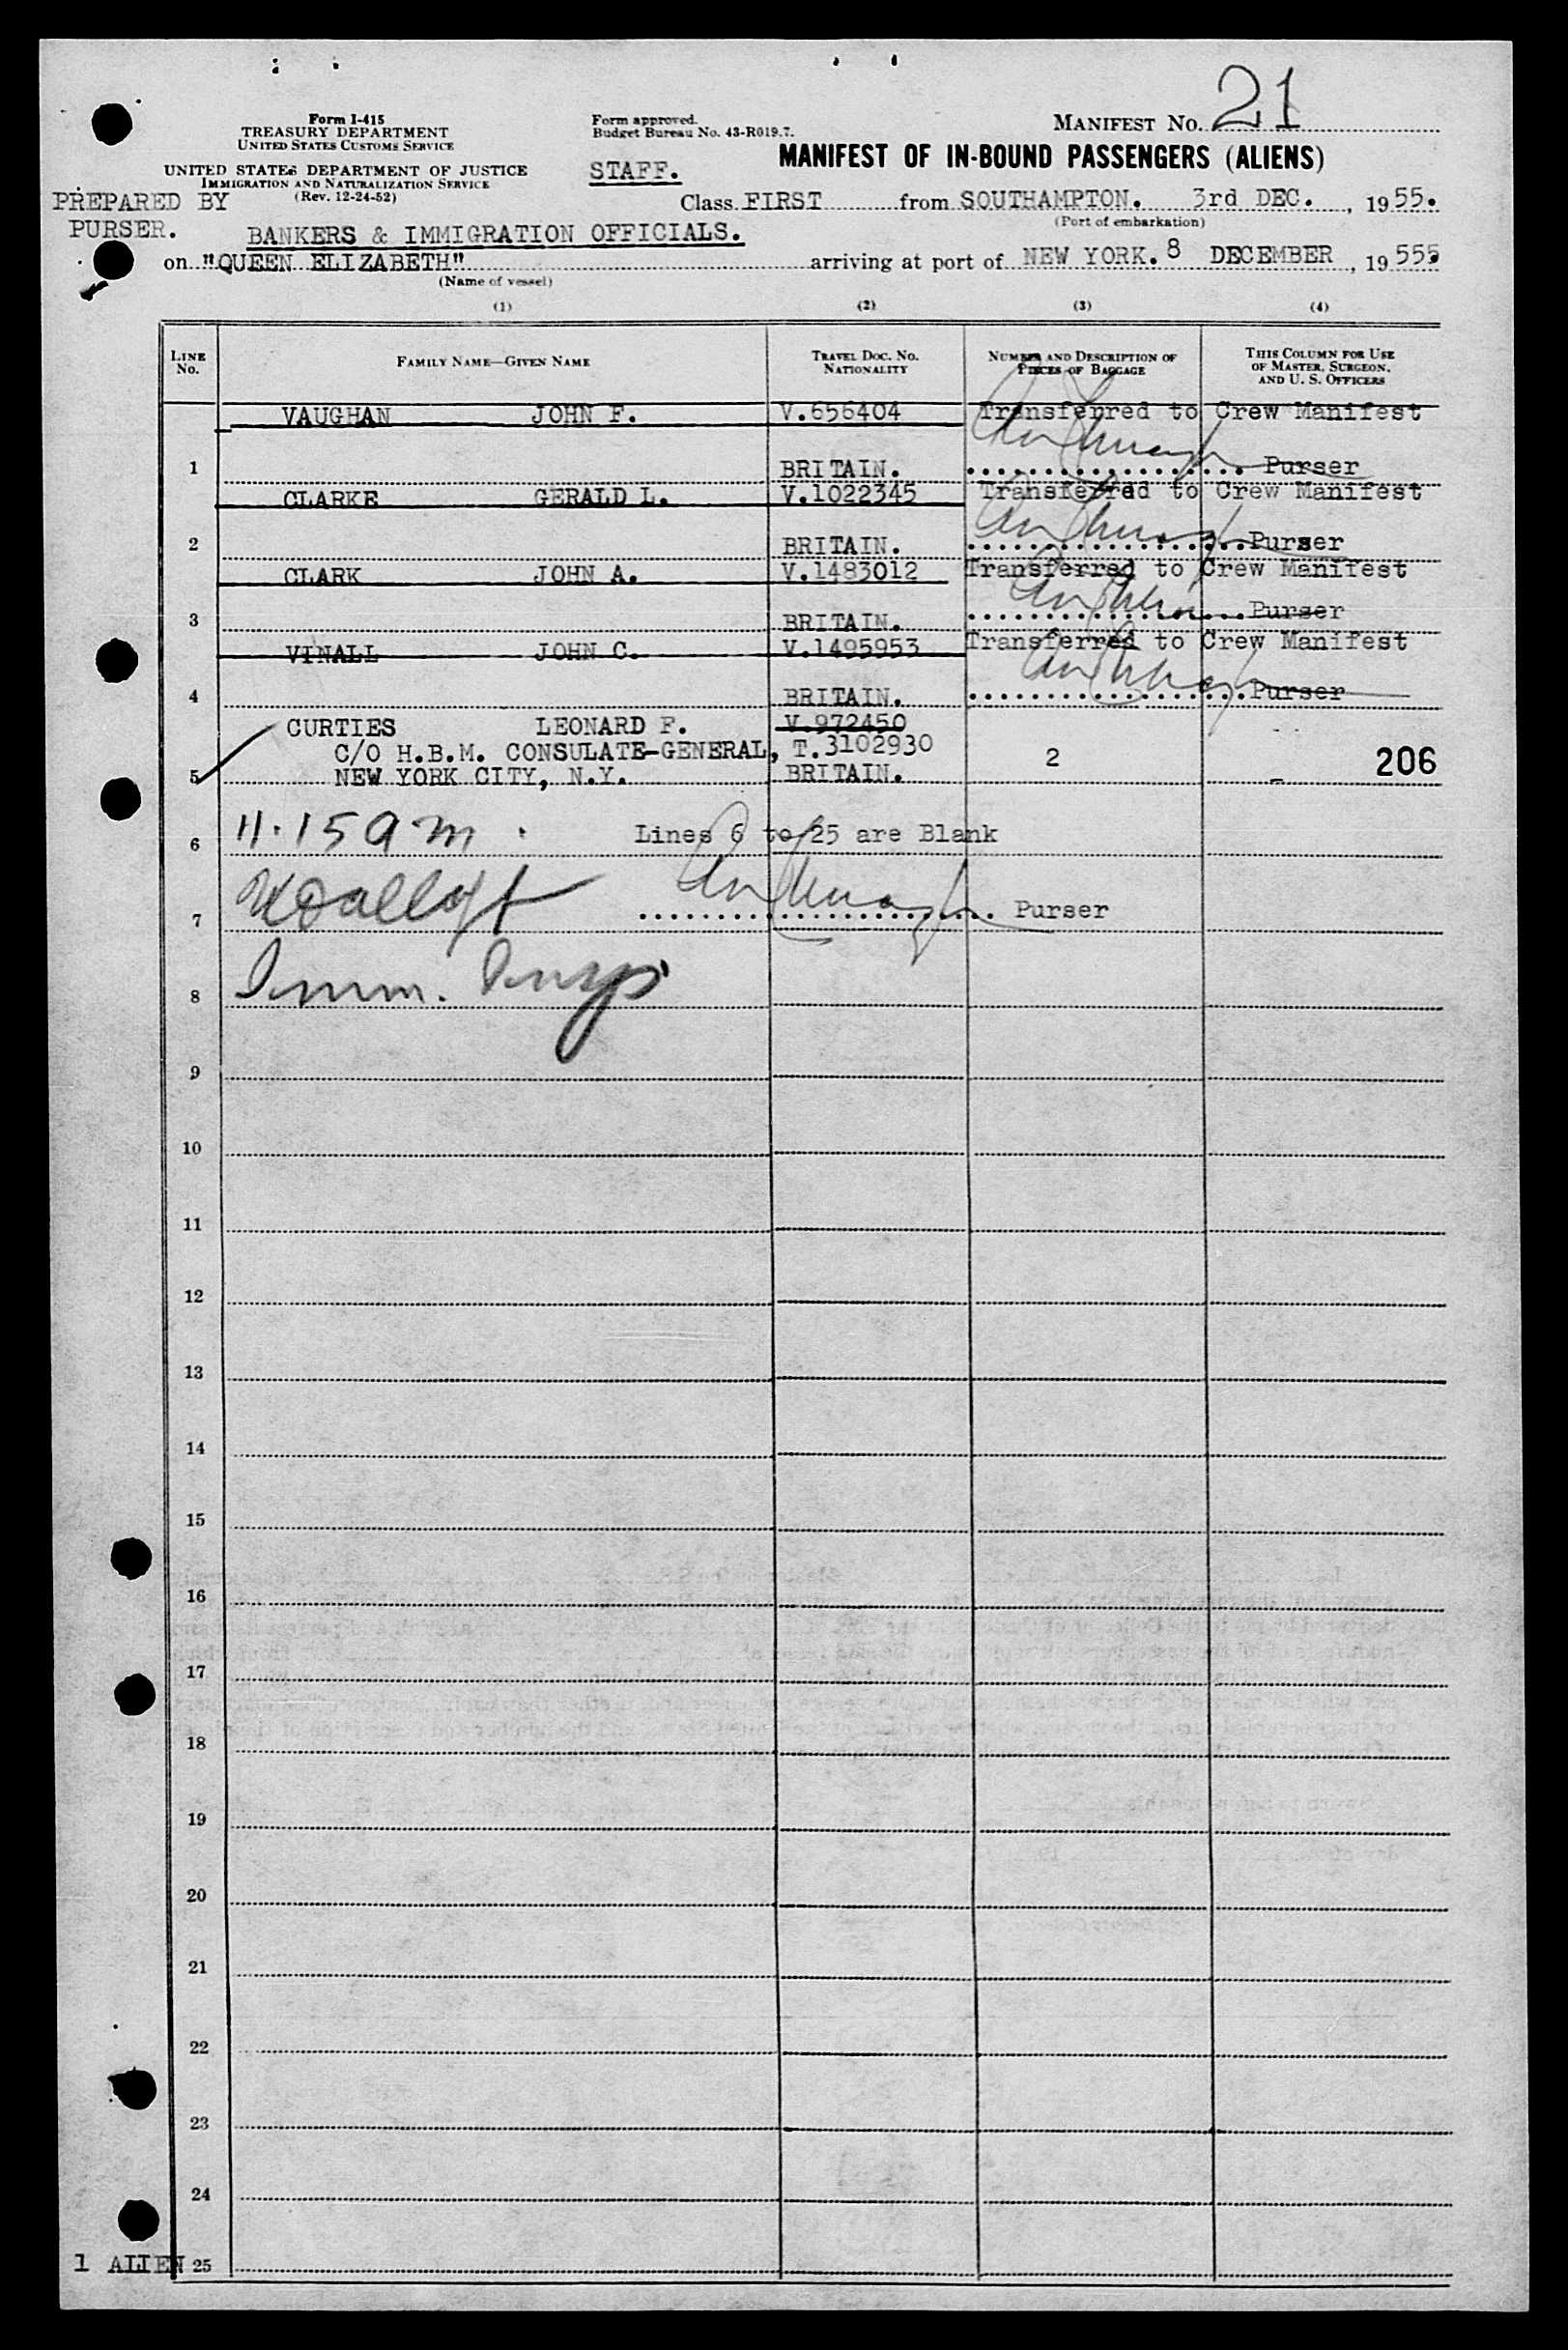 MANIFEST NO. 21
Form I-415
TREASURY DEPARTMENT
UNITED STATES CUSTOMS SERVICE
Form approved.
Budget Bureau No. 43-R019.7.
UNITED STATES DEPARTMENT OF JUSTICE
IMMIGRATION AND NATURALIZATION SERVICE
(Rev. 12-24-52)
STAFF.
MANIFEST OF IN-BOUND PASSENGERS (ALIENS)
PREPARED BY
PURSER.
Class FIRST from SOUTHAMPTON. 3rd DEC., 1955.
(Port of embarkation)
BANKERS & IMMIGRATION OFFICIALS.
on "QUEEN ELIZABETH" arriving at port of NEW YORK. 8 DECEMBER, 19555
(Name of vessel)
(1) (2) (3) (4)
LINE NO. FAMILY NAME—GIVEN NAME TRAVEL DOC. NO. NATIONALITY NUMBER AND DESCRIPTION OF PIECES OF BAGGAGE THIS COLUMN FOR USE OF MASTER, SURGEON, AND U. S. OFFICERS
VAUGHAN JOHN F. V.656404 Transferred to Crew Manifest
1 BRITAIN. Purser
CLARKE GERALD L. V.1022345 Transferred to Crew Manifest
2 BRITAIN. Purser
CLARK JOHN A. V.1483012 Transferred to Crew Manifest
3 BRITAIN. Purser
VINALL JOHN C. V.1495953 Transferred to Crew Manifest
4 BRITAIN. Purser
CURTIES LEONARD F. V.972450
C/O H.B.M. CONSULATE-GENERAL, T.3102930 2 206
5 NEW YORK CITY, N.Y. BRITAIN. -
6 11.15 am. Lines 6 to 25 are Blank
7 Purser
8 Imm. Insp.
9
10
11
12
13
14
15
16
17
18
19
20
21
22
23
24
1 ALIEN 25